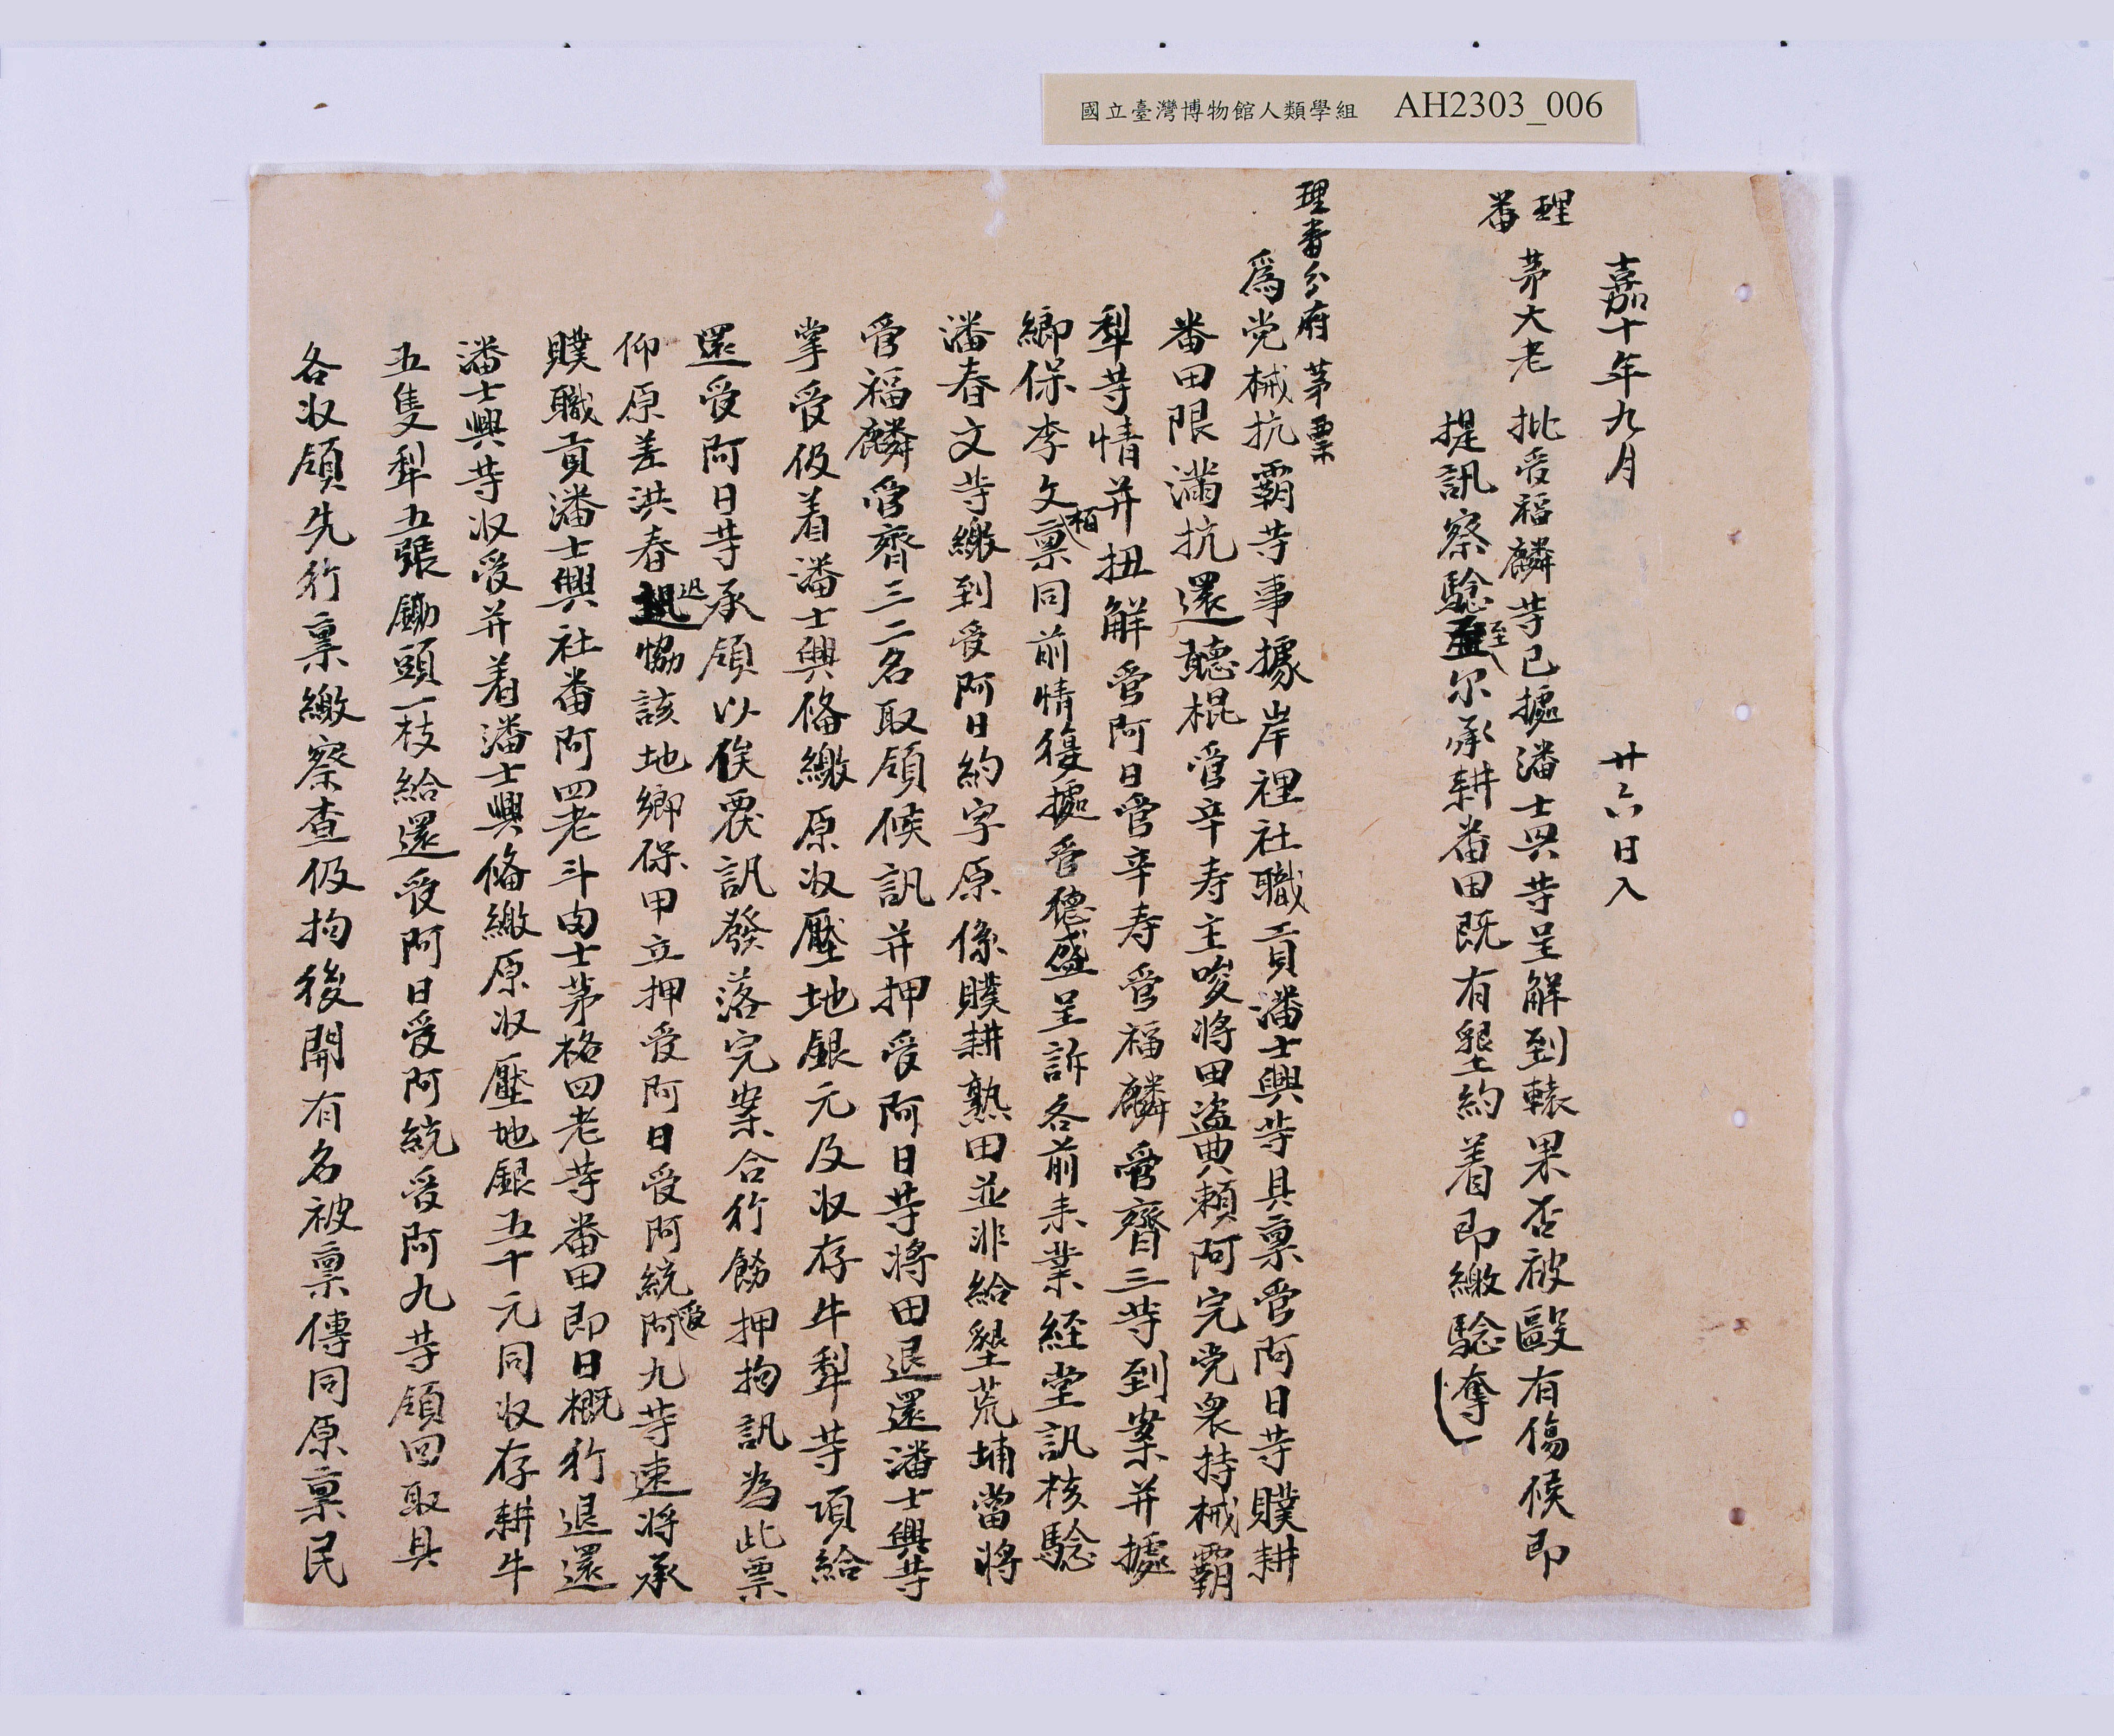 國立臺灣博物館人類學組 AH2303_006
嘉十年九月 廿六日入
理番 茅大老 批受福麟等已據潘士興等呈解到轅果否被毆有傷候即
提訊察驗至尔承耕番田既有墾約着即繳驗奪
理番分府茅票
為党械抗霸等事據岸裡社職貢潘士興等具稟管阿日等贌耕
番田限滿抗還聽棍管辛寿主唆將田盜典賴阿完党衆持械霸
犁等情并扭解管阿日管辛寿管福麟管齊三等到案并據
鄉保李文栢稟同前情復據管德盛呈訴各前来業経堂訊核驗
潘春文等繳到受阿日約字原係贌耕熟田並非給墾荒埔當將
管福麟管齊三二名取領候訊并押受阿日等將田退還潘士興等
掌受仍着潘士興俻繳原収壓地銀元及収存牛犁等項給
還受阿日等承領以俟覆訊發落完案合行飭押拘訊為此票
仰原差洪春迅協該地鄉保甲立押受阿日受阿統受阿九等速将承
贌職貢潘士興社番阿四老斗肉士茅格四老等番田即日概行退還
潘士興等収受并着潘士興俻繳原収壓地銀五十元同収存耕牛
五隻犁五張鋤頭一枝給還受阿日受阿統受阿九等領回取具
各収領先行稟繳察查仍拘後開有名被稟傳同原稟民